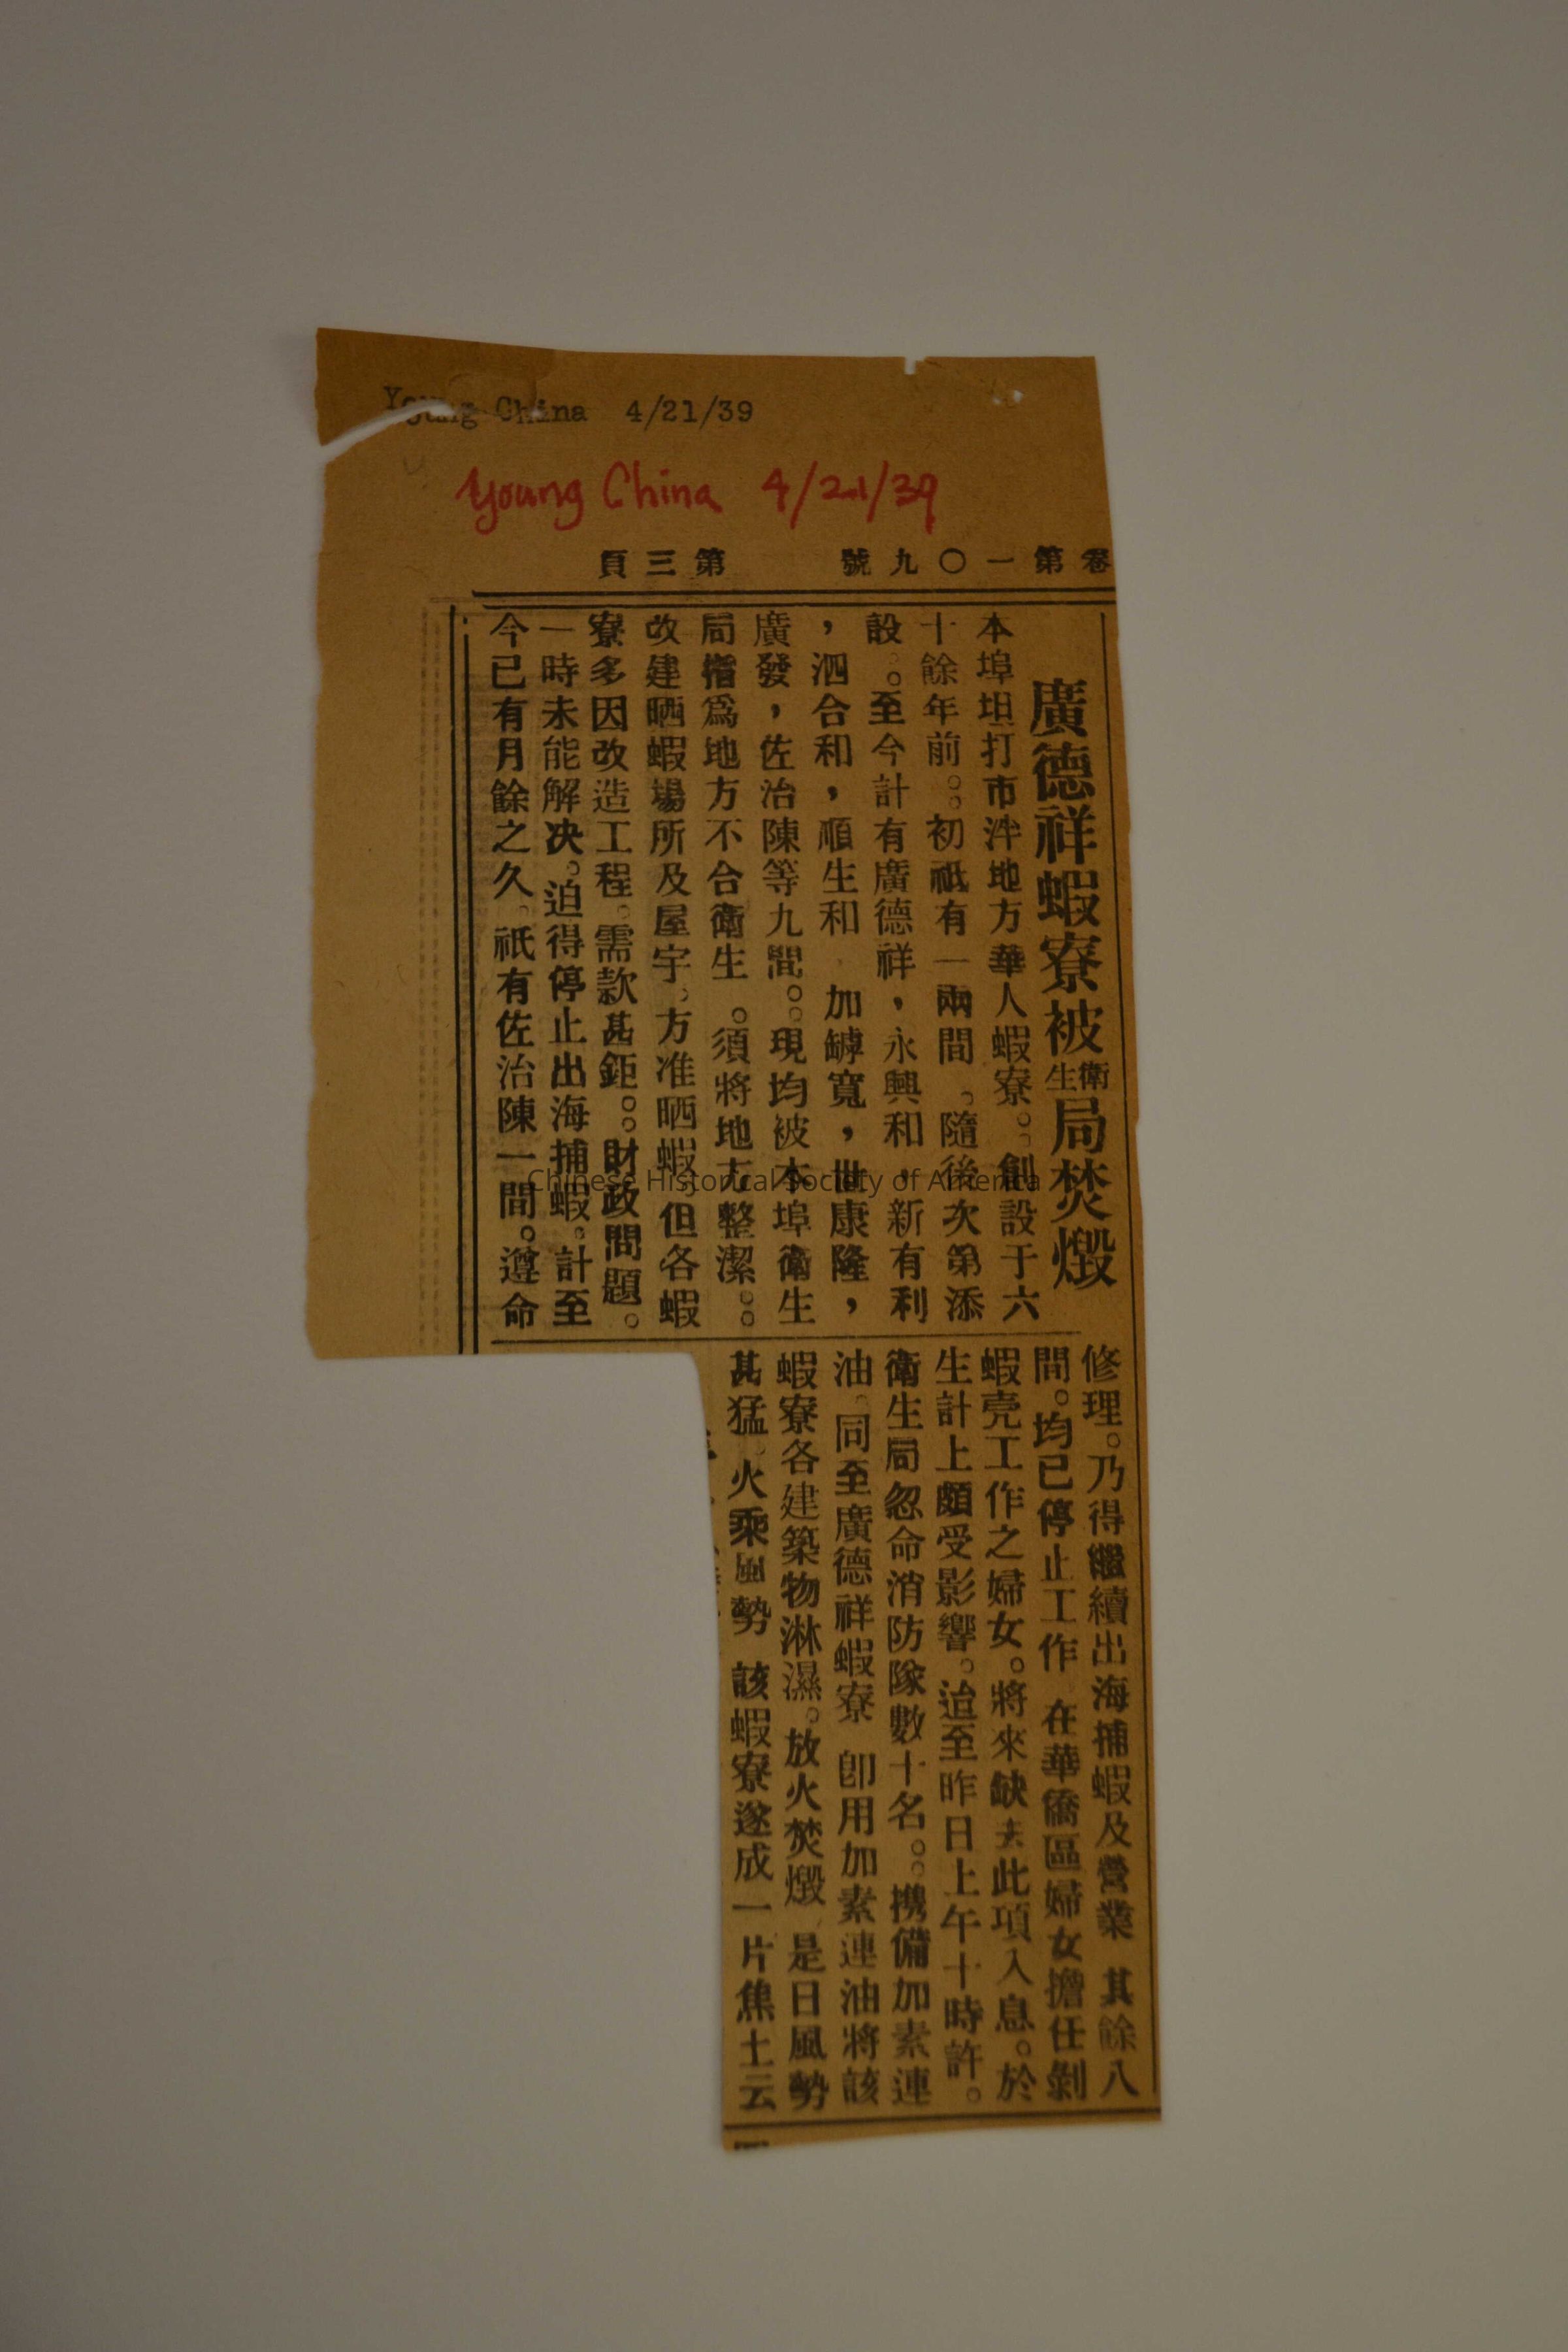 Young China 4/21/39
Young China 4/21/39
卷第一〇九號 第三頁
廣德祥蝦寮被衛生局焚燬
本埠坦打市泮地方華人蝦寮。創設于六
十餘年前。初祇有一兩間。隨後次第添
設。至今計有廣德祥，永興和，新有利
，泗合和，順生和 加罅寬，世康隆，
廣發，佐治陳等九間。現均被本埠衛生
局指爲地方不合衛生。須將地方整潔。
改建晒蝦場所及屋宇。方准晒蝦。但各蝦
寮多因改造工程。需款甚鉅。財政問題。
一時未能解决。迫得停止出海捕蝦。計至
今已有月餘之久。祇有佐治陳一間。遵命
修理。乃得繼續出海捕蝦及營業 其餘八
間。均已停止工作 在華僑區婦女擔任剝
蝦壳工作之婦女。將來缺去此項入息。於
生計上頗受影響。迨至昨日上午十時許。
衛生局忽命消防隊數十名。携備加素連
油。同至廣德祥蝦寮 卽用加素連油將該
蝦寮各建築物淋濕。放火焚燬 是日風勢
甚猛。火乘風勢 該蝦寮遂成一片焦土云
Chinese Historical Society of America